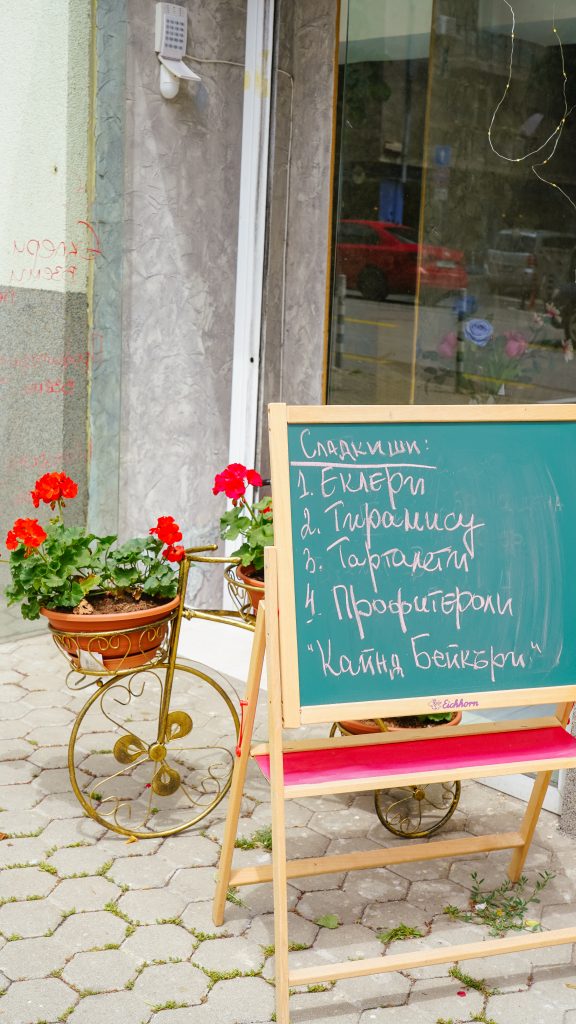 Сладкиши:
1. Еклери
2. Тирамису
3. Тарталети
4. Профитероли
"Кайнд Бейкъри"
Eichhorn